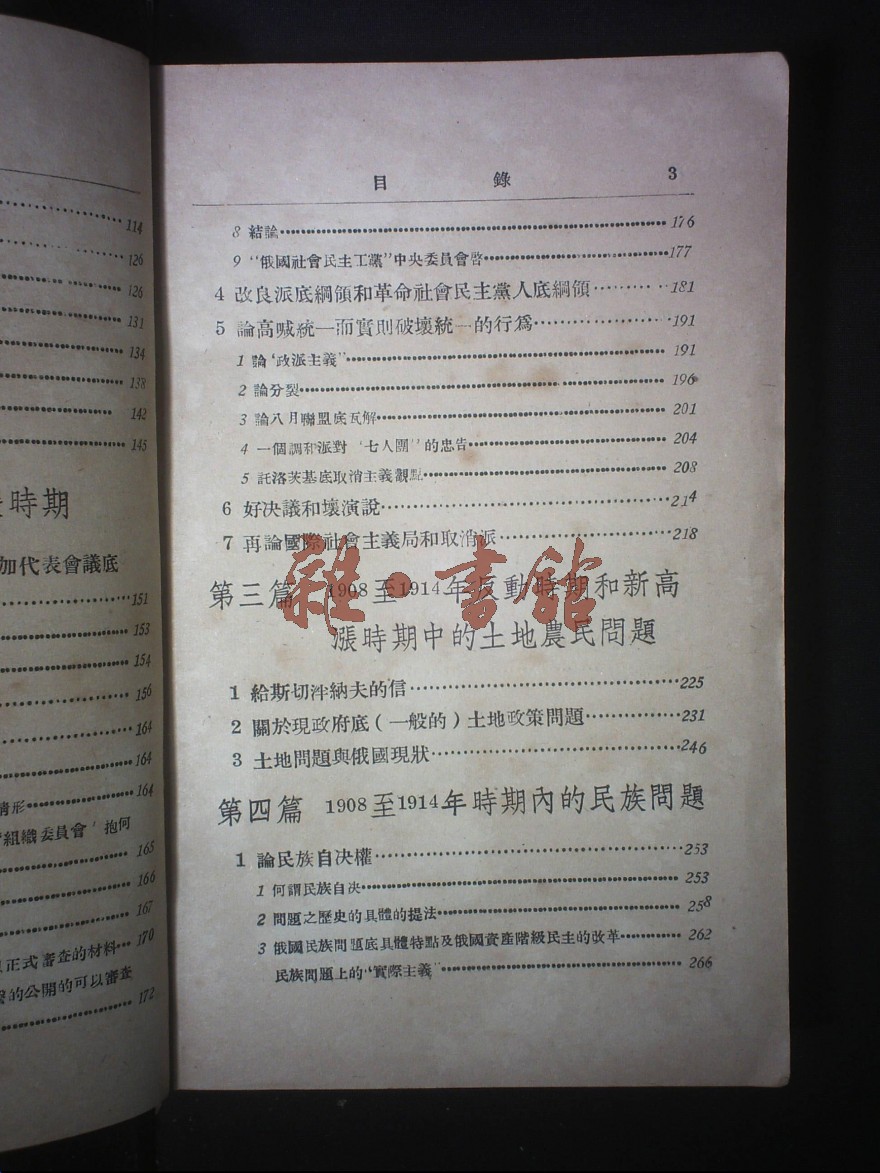 114
126
126
131
134
138
142
145
時期
加代表會議底
151
153
154
156
164
164
情形 164
組織委員會' 抱何
165
166
167
正式審查的材料 170
的公開的可以審查
172
目錄 3
8 結論 176
9 “俄國社會民主工黨”中央委員會啓 177
4 改良派底綱領和革命社會民主黨人底綱領 181
5 論高喊統一而實則破壞統一的行爲 191
1 論‘政派主義” 191
2 論分裂 196
3 論八月聯盟底瓦解 201
4 一個調和派對‘七人團”的忠告 204
5 託洛茨基底取消主義觀點 208
6 好決議和壞演說 214
7 再論國際社會主義局和取消派 218
雜·書館
第三篇 1908至1914年反動時期和新高
漲時期中的土地農民問題
1 給斯切泮納夫的信 225
2 關於現政府底(一般的)土地政策問題 231
3 土地問題與俄國現狀 246
第四篇 1908至1914年時期內的民族問題
1 論民族自決權 253
1 何謂民族自決 253
2 問題之歷史的具體的提法 258
3 俄國民族問題底具體特點及俄國資產階級民主的改革 262
民族問題上的“實際主義” 266